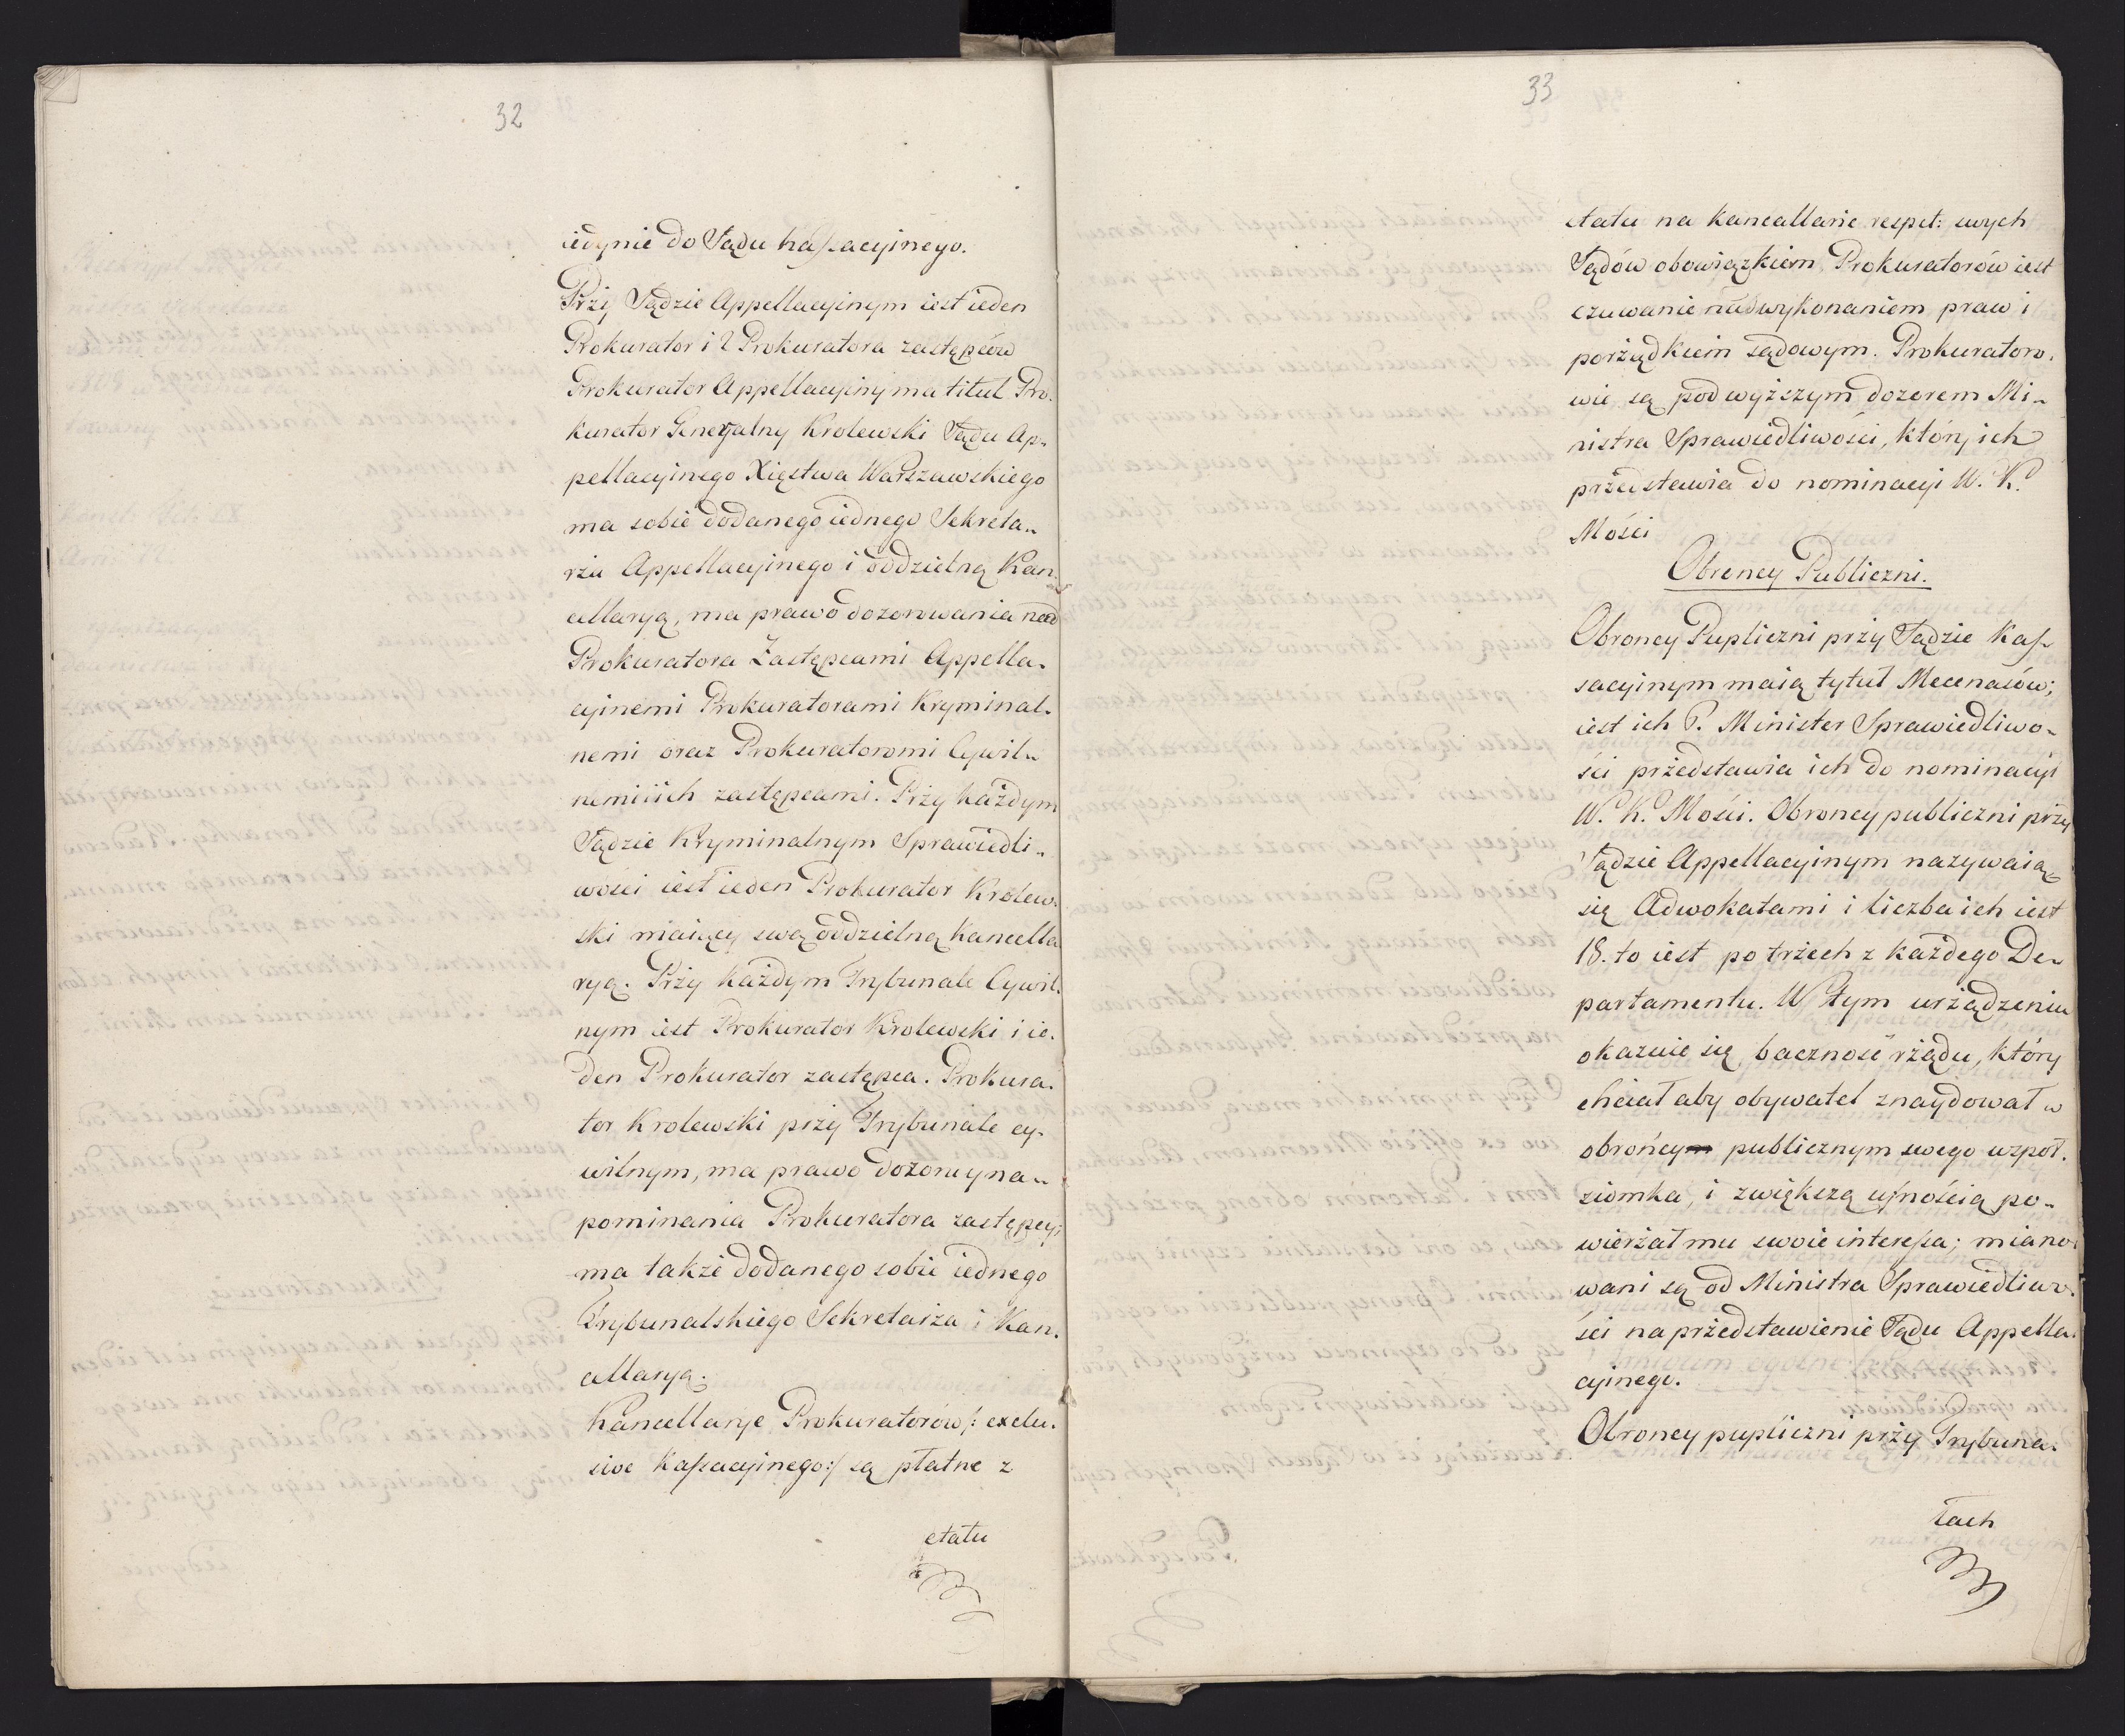 32
iedynie do Sądu kassacyinego.
Przy Sądzie Appellacyinym iest ieden
Prokurator i 2 Prokuratora zastępców
Prokurator Appellacyiny ma titul Pro.
kurator Generalny Krolewski Sądu Ap„
pellacyinego Xięstwa Warszawskiego
ma sobie dodanego iednego Sekreta„
rza Appellacyinego i oddzielną Kan.
cellaryą, ma prawo dozorowania nad
Prokuratora Zastępcami Appella.
cyinemi Prokuratorami Kryminal.
nemi oraz Prokuratoromi Cywil„
nemi i ich zastępcami. Przy każdym
Sądzie Kryminalnym Sprawiedli„
wości iest ieden Prokurator Krolew.
ski maiący swą oddzielną kancella
ryą. Przy każdym Trybunale Cywil.
nym iest Prokurator Krolewski i ie.
den Prokurator zastępca. Prokura.
tor Krolewski przy Trybunale cy.
wilnym, ma prawo dozoru y na„
pominania Prokuratora zastępcy;
ma także dodanego sobie iednego
Trybunalskiego Sekretarza i Kan.
cellaryą.
Kancellarye Prokuratorów /: exclu.
sive Kassacyinego :/ są płatne z
etatu
33
etatu na kancallarie respet: swych
Sądów obowiązkiem Prokuratorów iest
czuwanie nad wykonaniem praw i
porządkiem sądowym. Prokuratoro.
wie są pod wyższym dozorem Mi„
nistra Sprawiedliwości, który ich
przedstawia do nominacyi W. K.
Mości
Obroncy Publiczni.
Obroncy Pupliczni przy Sądzie Kas„
sacyinym maią tytuł Mecenasów;
iest ich 6. Minister Sprawiedliwo„
ści przedstawia ich do nominacyi
W. K. Mości. Obroncy publiczni przy
Sądzie Appellacyinym nazywaią
się Adwokatami i liczba ich iest
18. to iest po trzech z każdego De„
partamentu. W tym urządzeniu
okazuie się baczność rządu, który
chciał aby obywatel znaydował w
obrońcy publicznym swego wzpoł.
ziomka, i zwiększą ufnością po„
wierzał mu swoie interessa; miano.
wani są od Ministra Sprawiedliwo.
ści na przedstawienie Sądu Appella.
cyinego.
Obroncy pupliczni przy Trybuna.
łach